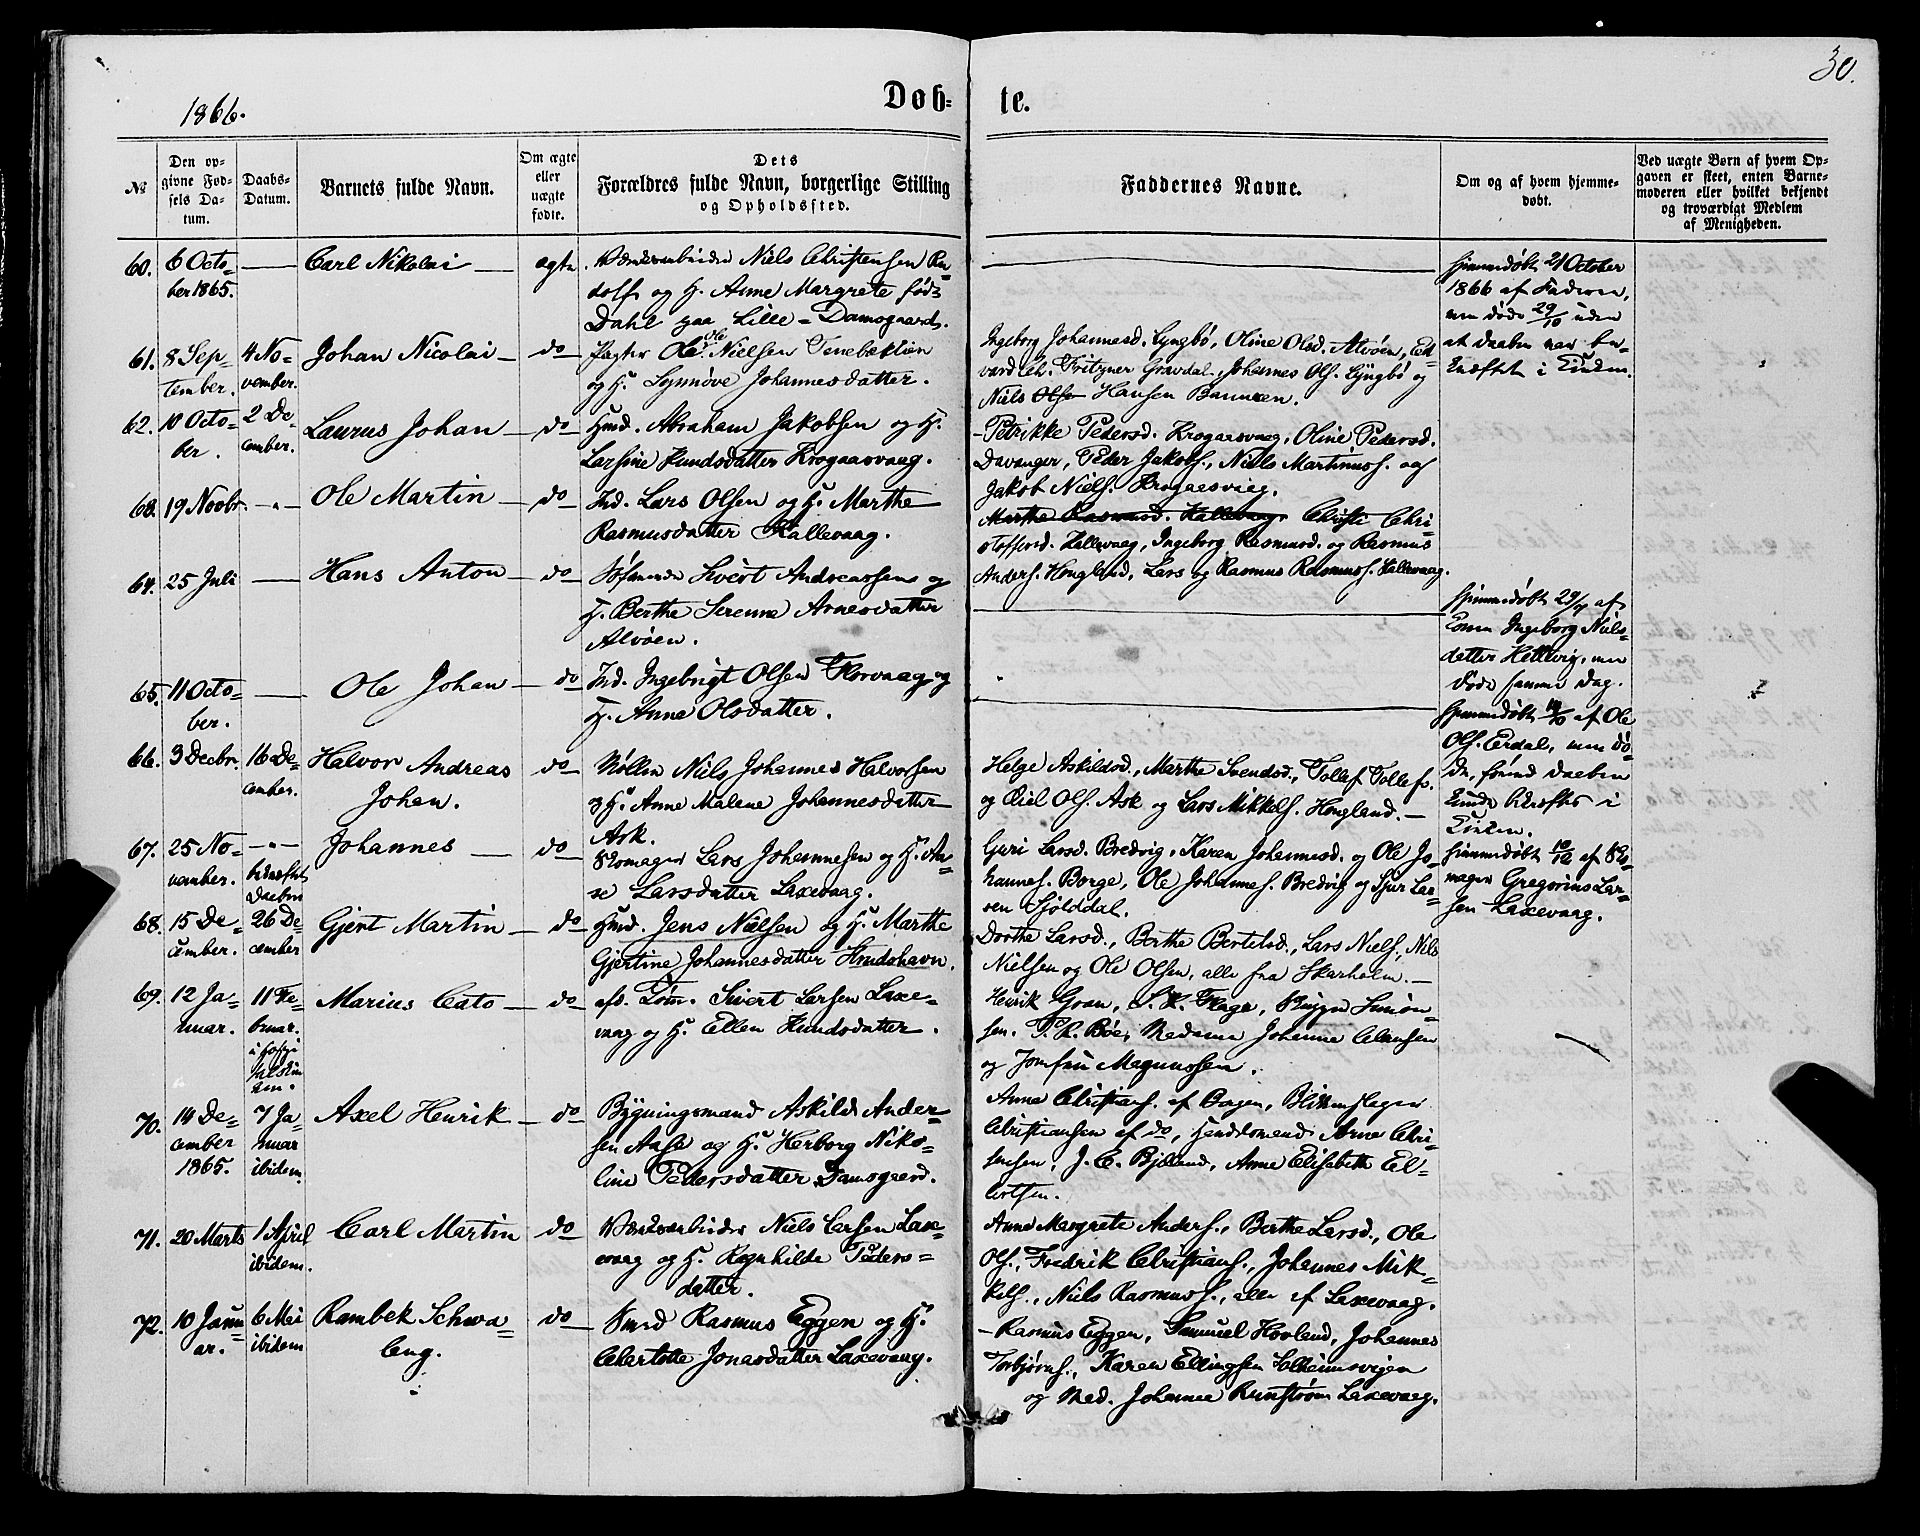 30.
1866.
Døb-
te.
№
Den op-
givne Fød-
sels Da-
tum.
Daabs-
Datum.
Barnets fulde Navn.
Om ægte
eller
uægte
fødte.
Dets
Forældres fulde Navn, borgerlige Stilling
og Opholdssted.
Faddernes Navne.
Om og af hvem hjemme-
døbt.
Ved uægte Børn af hvem Op-
gaven er skeet, enten Barne-
moderen eller hvilket bekjendt
og troværdigt Medlem
af Menigheden.
60. 6 Octo-
ber 1865.
Carl Nikolai
ægte
Niels Christensen
og H. Anne Margrete født
Dahl paa Lille-Damsgaard.
hjemmedøbt 21 October
1866 af Faderen,
men døde 29/10 uden
at Daaben var be-
kræftet i Kirken.
61. 8 Sep-
tember.
4 No-
vember.
Johan Nicolai
do
Pagter Ole Nielsen
og H. Synnøve Johannesdatter.
Ingeborg Johannesd. Lyngbø, Oline Olsd. Alvøen, Ed-
vard Chr. Fritzner Gravdal, Johannes Ols. Lyngbø og
Niels Olsen Hansen
62. 10 Octo-
ber.
2 De-
cember.
Laurus Johan
do
Hmd. Abraham Jakobsen og H.
Larsine Knudsdatter Krogaasvaag.
Petrikke Pedersd. Krogaasvaag, Oline Pedersd.
Davanger, Peder Jakobs., Niels Martinuss. og
Jakob Niels. Krogaasvaag.
63. 19 Novbr.
-"-
Ole Martin
do
Ind. Lars Olsen og H. Marthe
Rasmusdatter Kallevaag.
Marthe Rasmusd. Kallevaag, Christi Chri-
stoffersd. Kallevaag, Ingeborg Rasmusd. og Rasmus
Anders. Hougland, Lars og Rasmus Rasmuss. Kallevaag.
64. 25 Juli
Hans Anton
do
Sivert Andreassen og
H. Berthe Serenne Arnesdatter
Alvøen.
hjemmedøbt 29/7 af
Konen Ingeborg Niels-
datter Hetlevig, men
døde samme Dag.
65. 11 Octo-
ber.
Ole Johan
do
Ind. Ingebrigt Olsen Florvaag og
H. Anne Olsdatter.
hjemmedøbt af Ole
Ols. Erdal, men dø-
de, førend Daaben
kunde bekræftes i
Kirken.
66. 3 Decbr.
16 De-
cember.
Halvor Andreas
Johan.
do
Møller Niels Johannes Halvorsen
og H. Anne Malene Johannesdatter
Ask.
Helge Askildsd., Marthe Svendsd., Tollef Tollefs.
og Ols. Ask og Lars Mikkels. Hougland.
67. 25 No-
vember.
-"-
bekræftet
Daaben
Johannes
do
Skomager Lars Johannesen og H. An-
ne Larsdatter Laxevaag.
Guri Larsd. Bredvig, Karen Johannesd. og Ole Jo-
hannes. Borge, Ole Johannes. Bredvig og Sjur Lar-
sen Sjølddal.
hjemmedøbt 10/12 af Sko-
mager Gregorius Lar-
sen Laxevaag.
68. 15 De-
cember.
26 De-
cember
Gjert Martin
do
Hmd. Jens Nielsen og H. Marthe
Gjertine Johannesdatter Hundshavn.
Dorthe Larsd., Berthe Bertelsd., Lars Niels., Nils
Nielsen og Ole Olsen, alle fra Skarholm.
69. 12 Ja-
nuar.
11 Fe-
bruar.
Marius Cato
do
Sivert Larsen Laxe-
vaag og H. Ellen Knudsdatter.
Henrik Gran, Flage, Simon-
sen. Bøe, Madame Johanne Clausen
og Jomfru Magnussen.
70. 14 De-
cember
1865.
7 Ja-
nuar
ibidem.
Axel Henrik
do
Bygningsmand Askild Ander-
sen og H. Herborg Niko-
line Pedersdatter Damsgaard.
Anne Christians. af Bergen, Blikkenslager
Christiansen af do, Arne Chri-
stensen, J. C. Bjelland, Anne Elisabeth El-
lertsen.
71. 20 Marts
1 April
ibidem.
Carl Martin
do
Niels Larsen Laxe-
vaag og H. Ragnhilde Peders-
datter.
Anne Margrete Anders., Berthe Larsd., Ole
Ols., Fredrik Christians., Johannes Mik-
kels., Niels Rasmuss., alle af Laxevaag.
72. 10 Janu-
ar.
6 Mai
ibidem
Rambek Schwa-
leng.
do
Smed Rasmus Eggen og H.
Charlotte Jonasdatter Laxevaag.
Rasmus Eggen, Samuel Hovland, Johannes
Torbjørns., Karen Ellingsen Solheimsvigen
og Mad. Johanne Runstrøm Laxevaag.